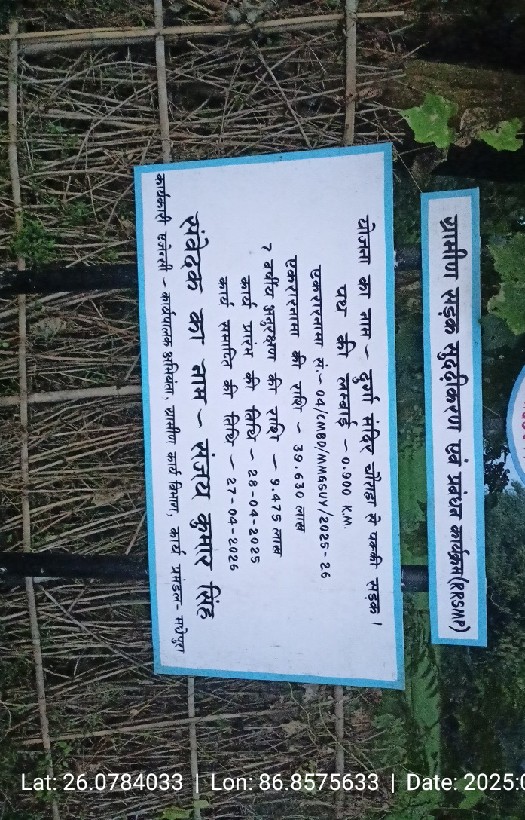 ग्रामीण सड़क सुदृढ़ीकरण एवं प्रबंधन कार्यक्रम(RRSMP)
योजना का नाम - दुर्गा मंदिर चौराहा से पक्की सड़क।
पथ की लम्बाई - 0.900 K.M
एकरारनामा सं.- 04/CMBD/MMGSUY/2025-26
एकरारनामा की राशि - 39.630 लाख
7 वर्षीय अनुरक्षण की राशि - 9.475 लाख
कार्य प्रारंभ की तिथि - 28-04-2025
कार्य समाप्ति की तिथि - 27-04-2026
संवेदक का नाम - संजय कुमार सिंह
कार्यकारी एजेंसी - कार्यपालक अभियंता, ग्रामीण कार्य विभाग, कार्य प्रमंडल- मधेपुरा
Lat: 26.0784033 | Lon: 86.8575633 | Date: 2025:0